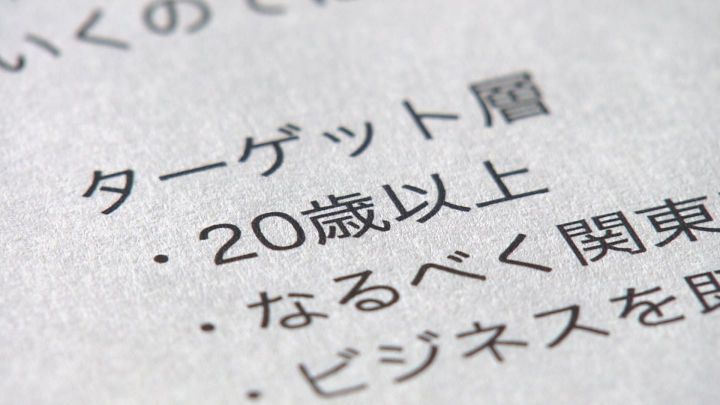 いくのでは
ターゲット層
・20歳以上
・なるべく関東
・ビジネスを